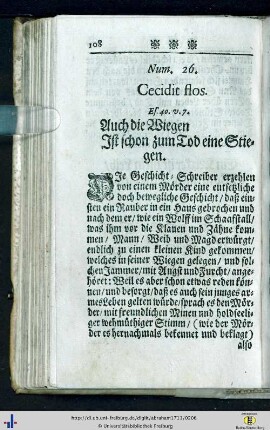 108 * * *
Num. 26.
Cecidit flos.
Es. 40. v. 7.
Auch die Wiegen
Ist schon zum Tod eine Stie-
gen.
DJe Geschicht-Schreiber erzehlen
von einem Mörder eine entsetzliche
doch bewegliche Geschicht / daß ein-
sten ein Rauber in ein Hans gebrochen und
nach dem er / wie ein Wolff im Schaafstall /
was ihm vor die Klauen und Zähne kom-
men / Mann / Weib und Magd erwürgt /
endlich zu einem kleinen Kind gekommen /
welches in seiner Wiegen gelegen / und sol-
chen Jammer / mit Angst und Furcht / ange-
höret: Weil es aber schon etwas reden kön-
nen / und besorgt / daß es auch sein junges ar-
mes Leben gelten würde / sprach es den Mör-
der / mit freundlichen Minen und holdseeli-
ger wehmüthiger Stimm / (wie der Mör-
der es hernachmals bekennet und beklagt)
also
http://dl.ub.uni-freiburg.de/diglit/abraham1710/0206
© Universitätsbibliothek Freiburg